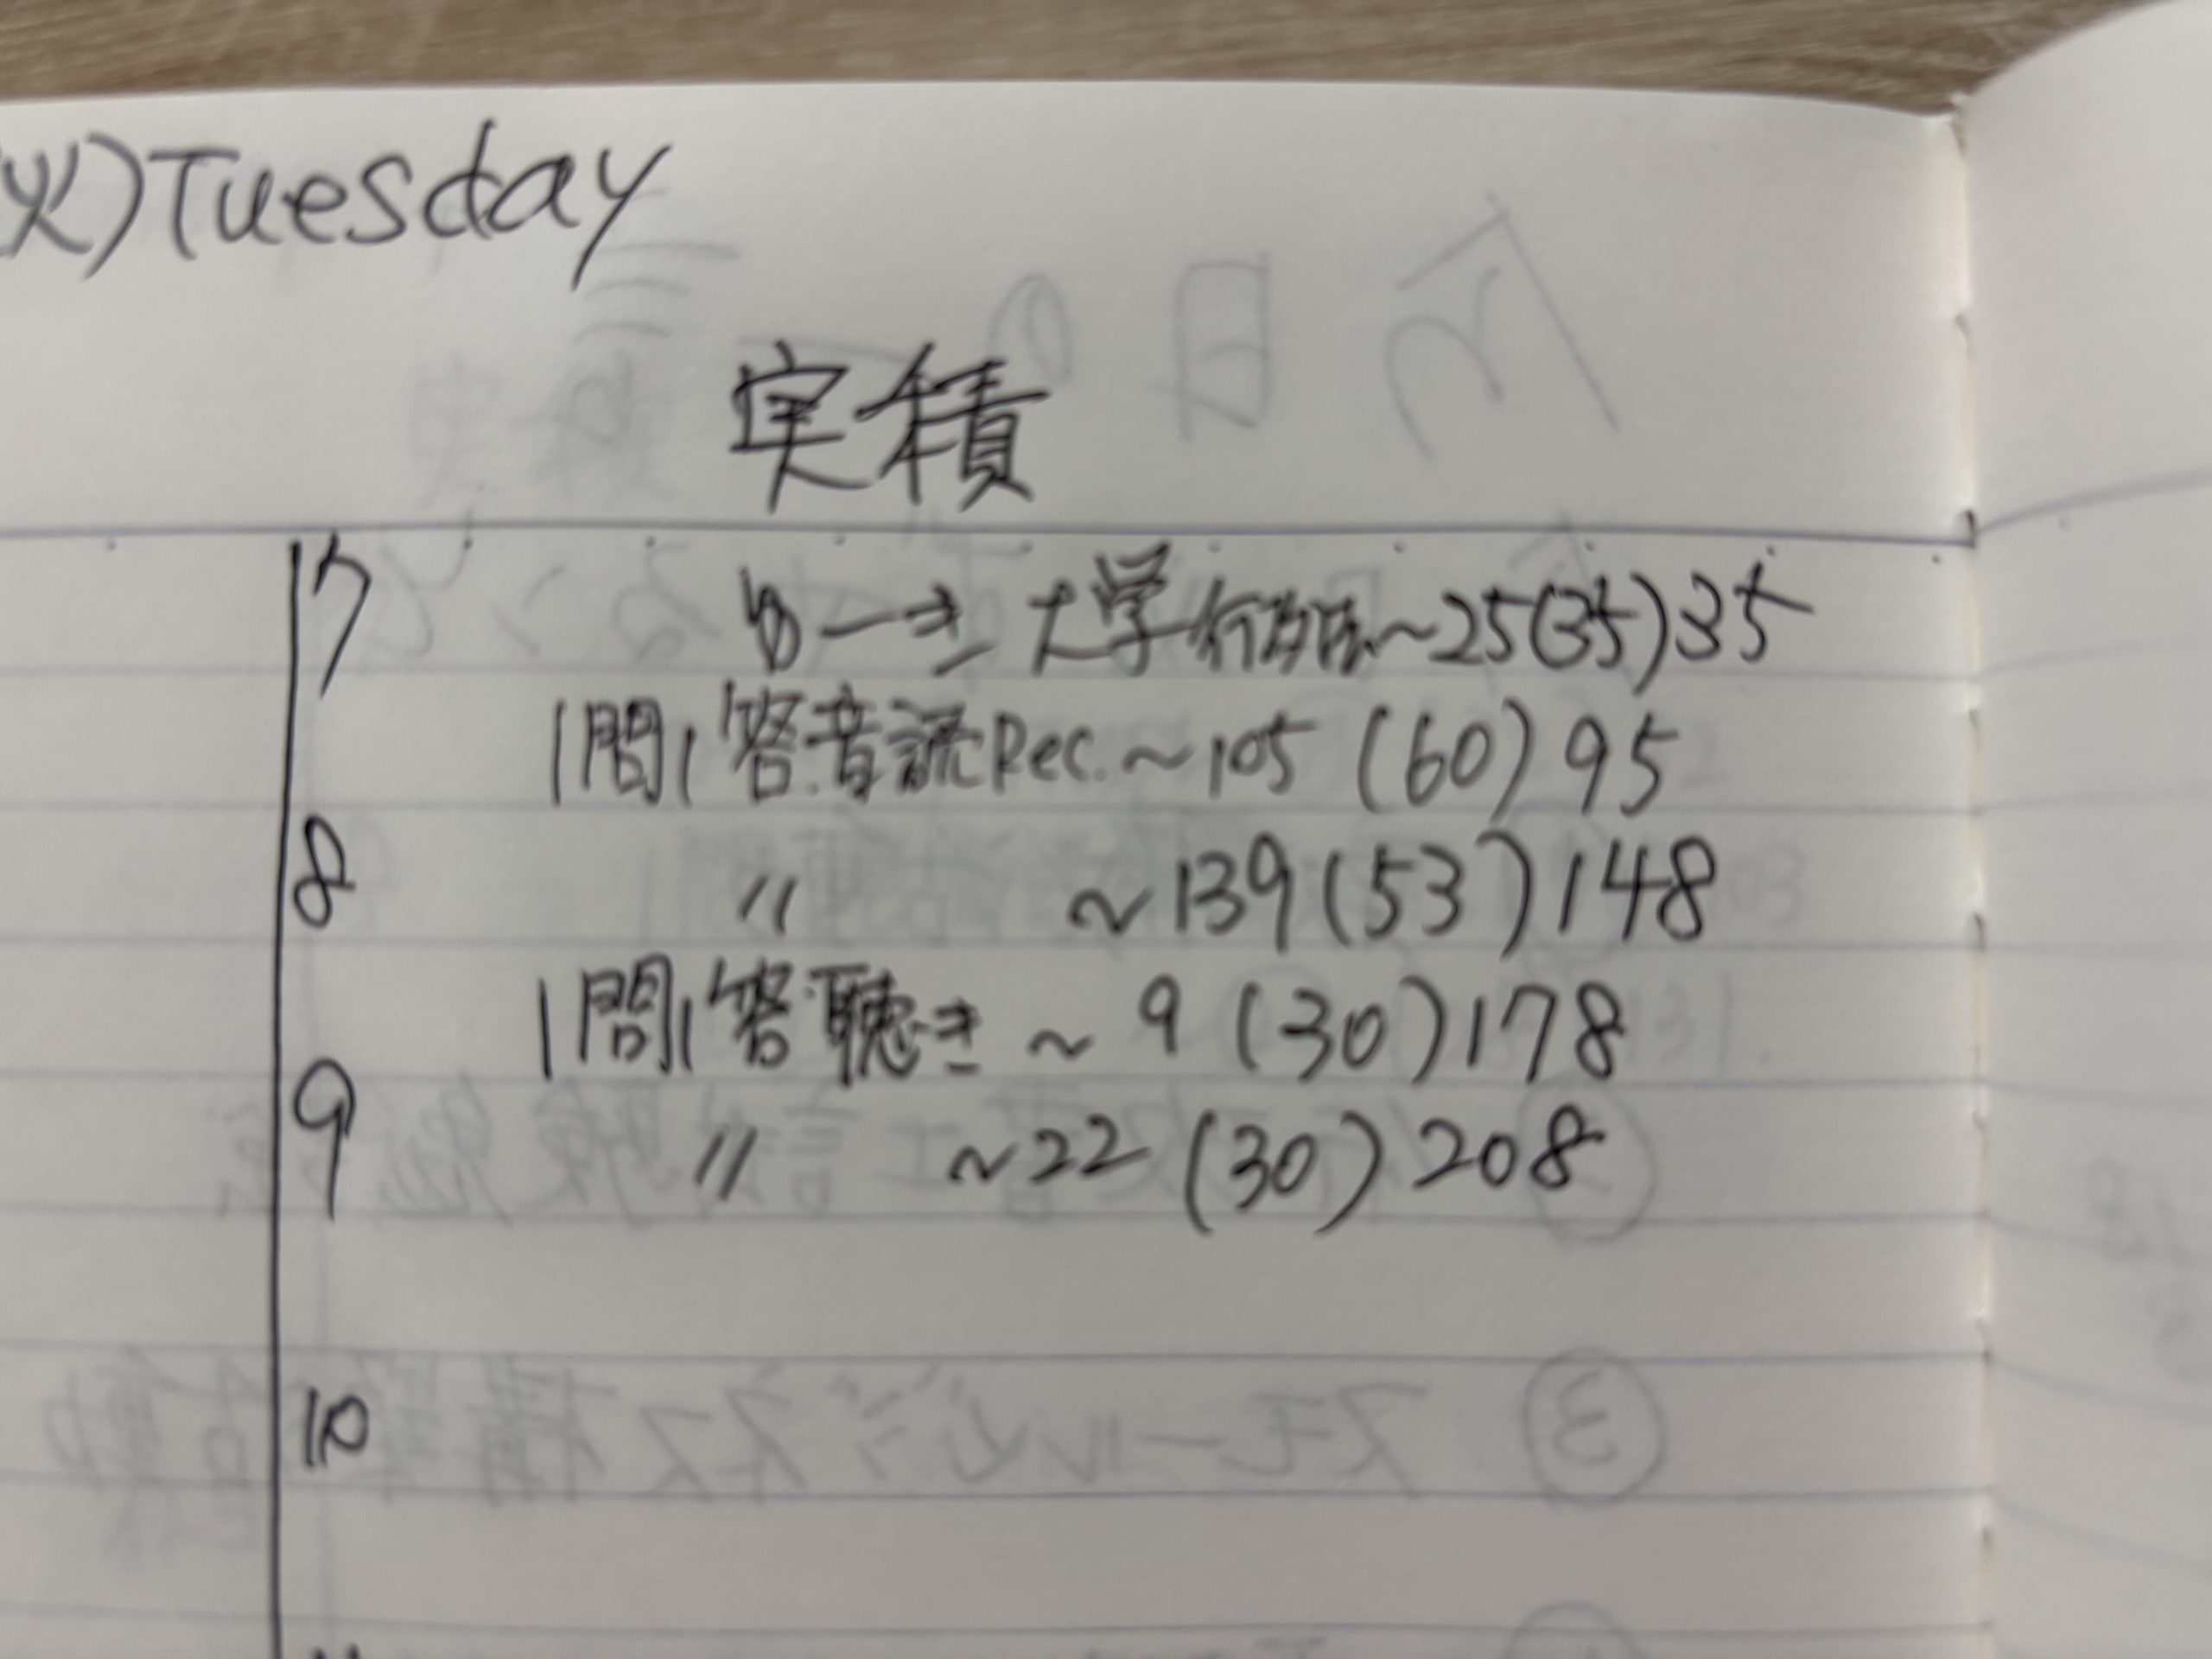 火)Tuesday
実積
7 ゆーき大学行政法~25(35)35
1問1答音読Rec.~105(60)95
8 〃 ~139(53)148
1問1答聴き~9(30)178
9 〃 ~22(30)208
10